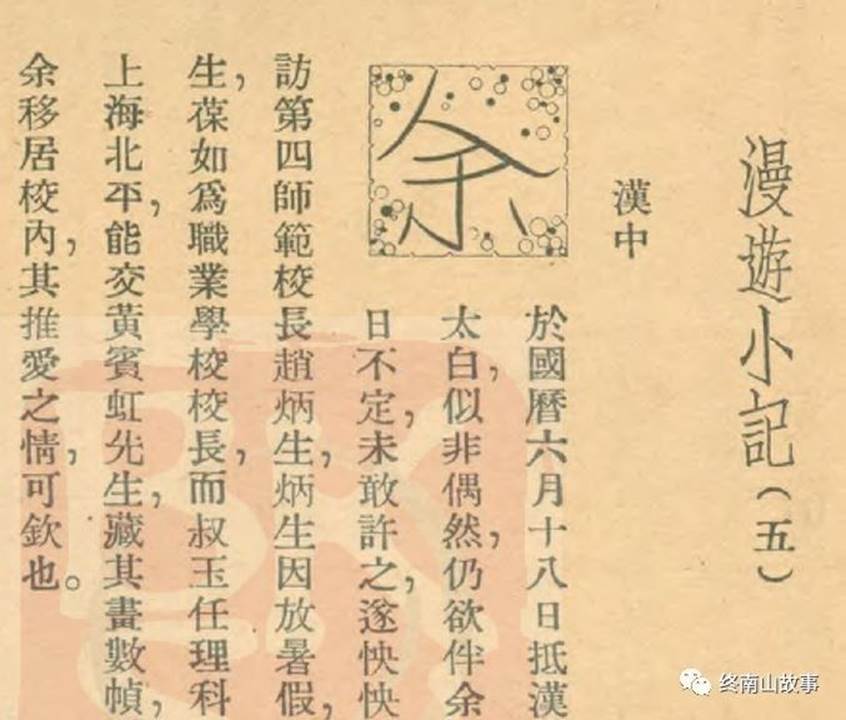 漫遊小記(五)
漢中
余
於國曆六月十八日抵漢
太白,似非偶然,仍欲伴余
日不定,未敢許之,遂怏怏
訪第四師範校長趙炳生,炳生因放暑假,
生,葆如爲職業學校校長,而叔玉任理科
上海北平,能交黃賓虹先生,藏其畫數幀,
余移居校內,其推愛之情,可欽也。
终南山故事